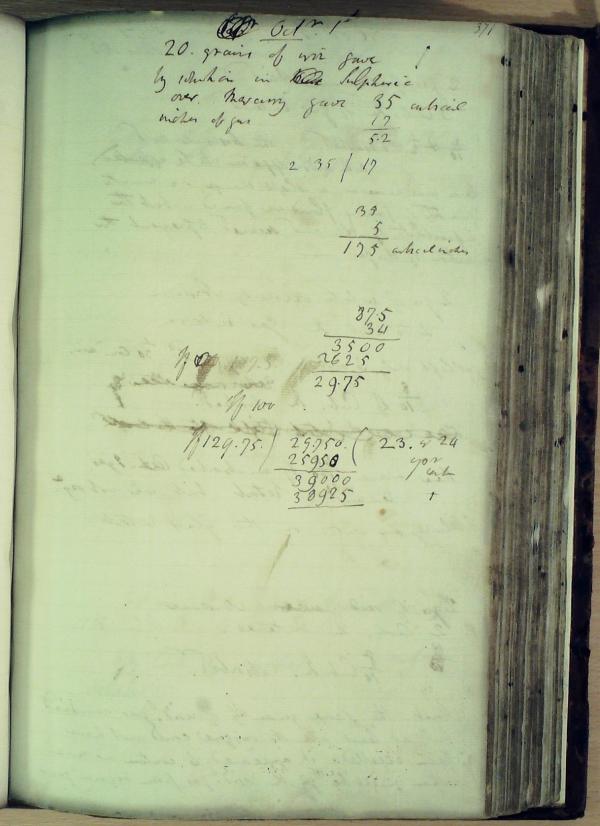 371
Octr 1st
20. grains of iron gave
by solution in Sulphuric
over Mercury gave 35 cubical
inches of gas 17
52
2 35 / 17
39
5
175 cubical inches
875
34
3500
2625
29.75
If
If 100
If 129.75 ) 29.750. ( 23. 24
25950
39000
38925 +